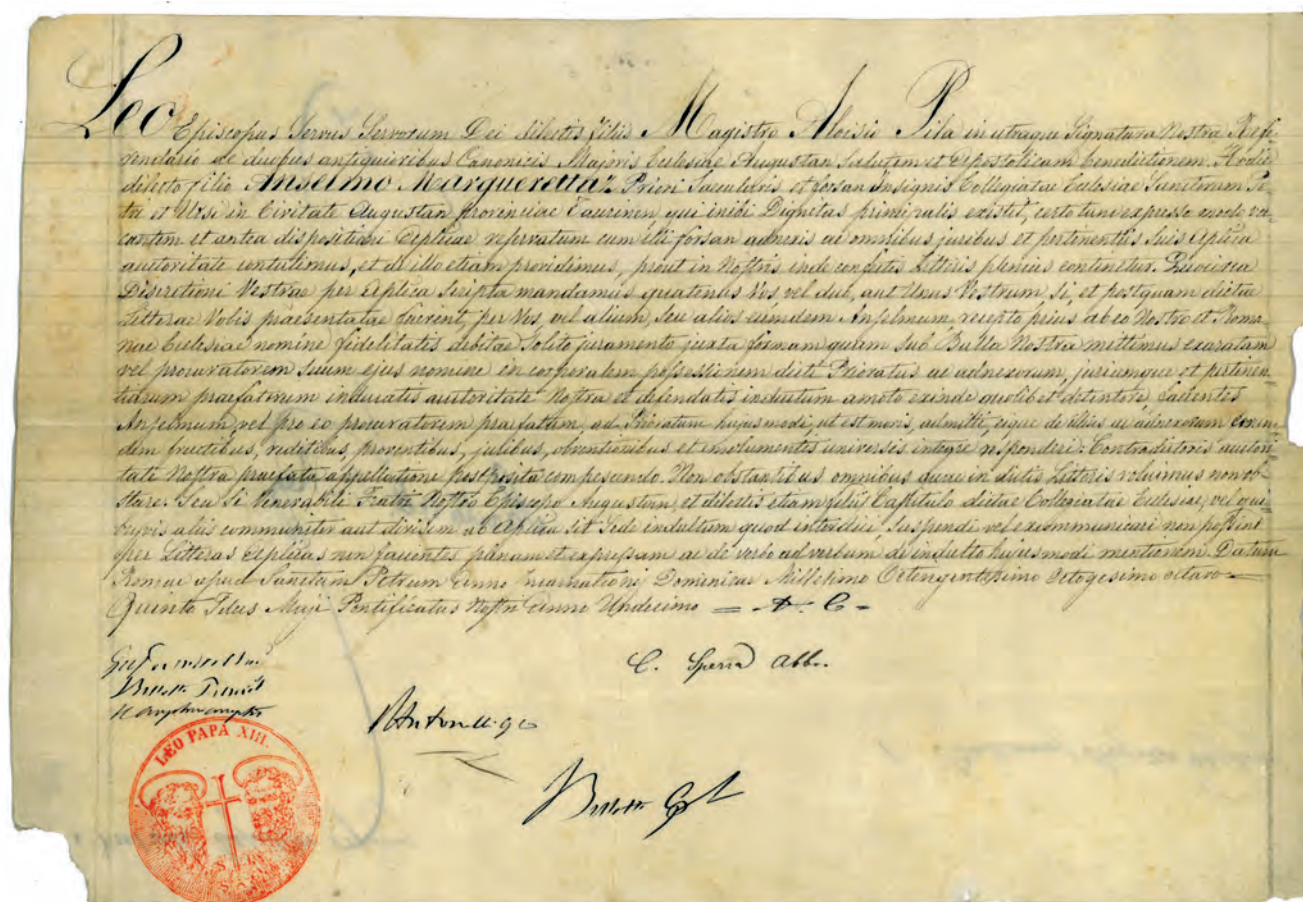 Leo Episcopus Servus Servorum Dei dilectis filiis Magistro Aloisio Pila in utraque Signatura Nostra Refe-
rendario de duobus antiquioribus Canonicis Majoris Ecclesiae Augustan Salutem et Apostolicam benedictionem. Hodie
dilecto filio Anselmo Marguerettaz Priori Saecularis et forsan Insignis Collegiatae Ecclesiae Sanctorum Pe-
tri et Ursi in Civitate Augustan, Provinciae Taurinen, qui inibi Dignitas principalis existit, certo tunc expresso modo va-
cantem et antea dispositioni Aplicae reservatum cum illi forsan adnexis ac omnibus juribus et pertinentiis suis Aplica
auctoritate contulimus, et de illo etiam providimus, prout in Nostris inde confectis Litteris plenius continetur. Quocirca
Discretioni Vestrae per Aplica Scripta mandamus quatenus Vos, vel duo, aut Unus Vestrum, Si, et postquam dictae
Litterae Vobis praesentatae fuerint, per Vos, vel alium, seu alios eundem Anselmum, recepto prius ab eo Nostro et Roma-
nae Ecclesiae nomine fidelitatis debitae solito juramento juxta formam quam sub Bulla Nostra mittimus exaratam
vel procuratorem suum ejus nomine in corporalem possessionem dicti Prioratus ac adnexorum, juriumque et pertinen-
tiarum praefatorum inducatis auctoritate Nostra et defendatis inductum amoto exinde quolibet detentore, facientes
Anselmum vel pro eo procuratorem praefatum, ad Prioratum hujusmodi, ut est moris, admitti, eique de illius ac adnexorum eorum-
dem fructibus, redditibus, proventibus, juribus, obventionibus et emolumentis universis integre responderi: Contradictores auctori-
tate Nostra praefata appellatione postposita compescendo. Non obstantibus omnibus quae in dictis Litteris volumus non ob-
stare. Seu si Venerabili Fratri Nostro Episcopo Augustan, et dilectis etiam filiis Capitulo dictae Collegiatae Ecclesiae, vel qui-
busvis aliis communiter aut divisim ab Aplica sit Sede indultum quod interdici, suspendi vel excommunicari non possint
per Litteras Aplicas non facientes plenam et expressam ac de verbo ad verbum de indulto hujusmodi mentionem. Datum
Romae apud Sanctum Petrum Anno Incarnationis Dominicae Millesimo Octingentesimo Octogesimo octavo
Quinto Idus Maji Pontificatus Nostri Anno Undecimo
C. Sperra Abbr.
LEO PAPA XIII.